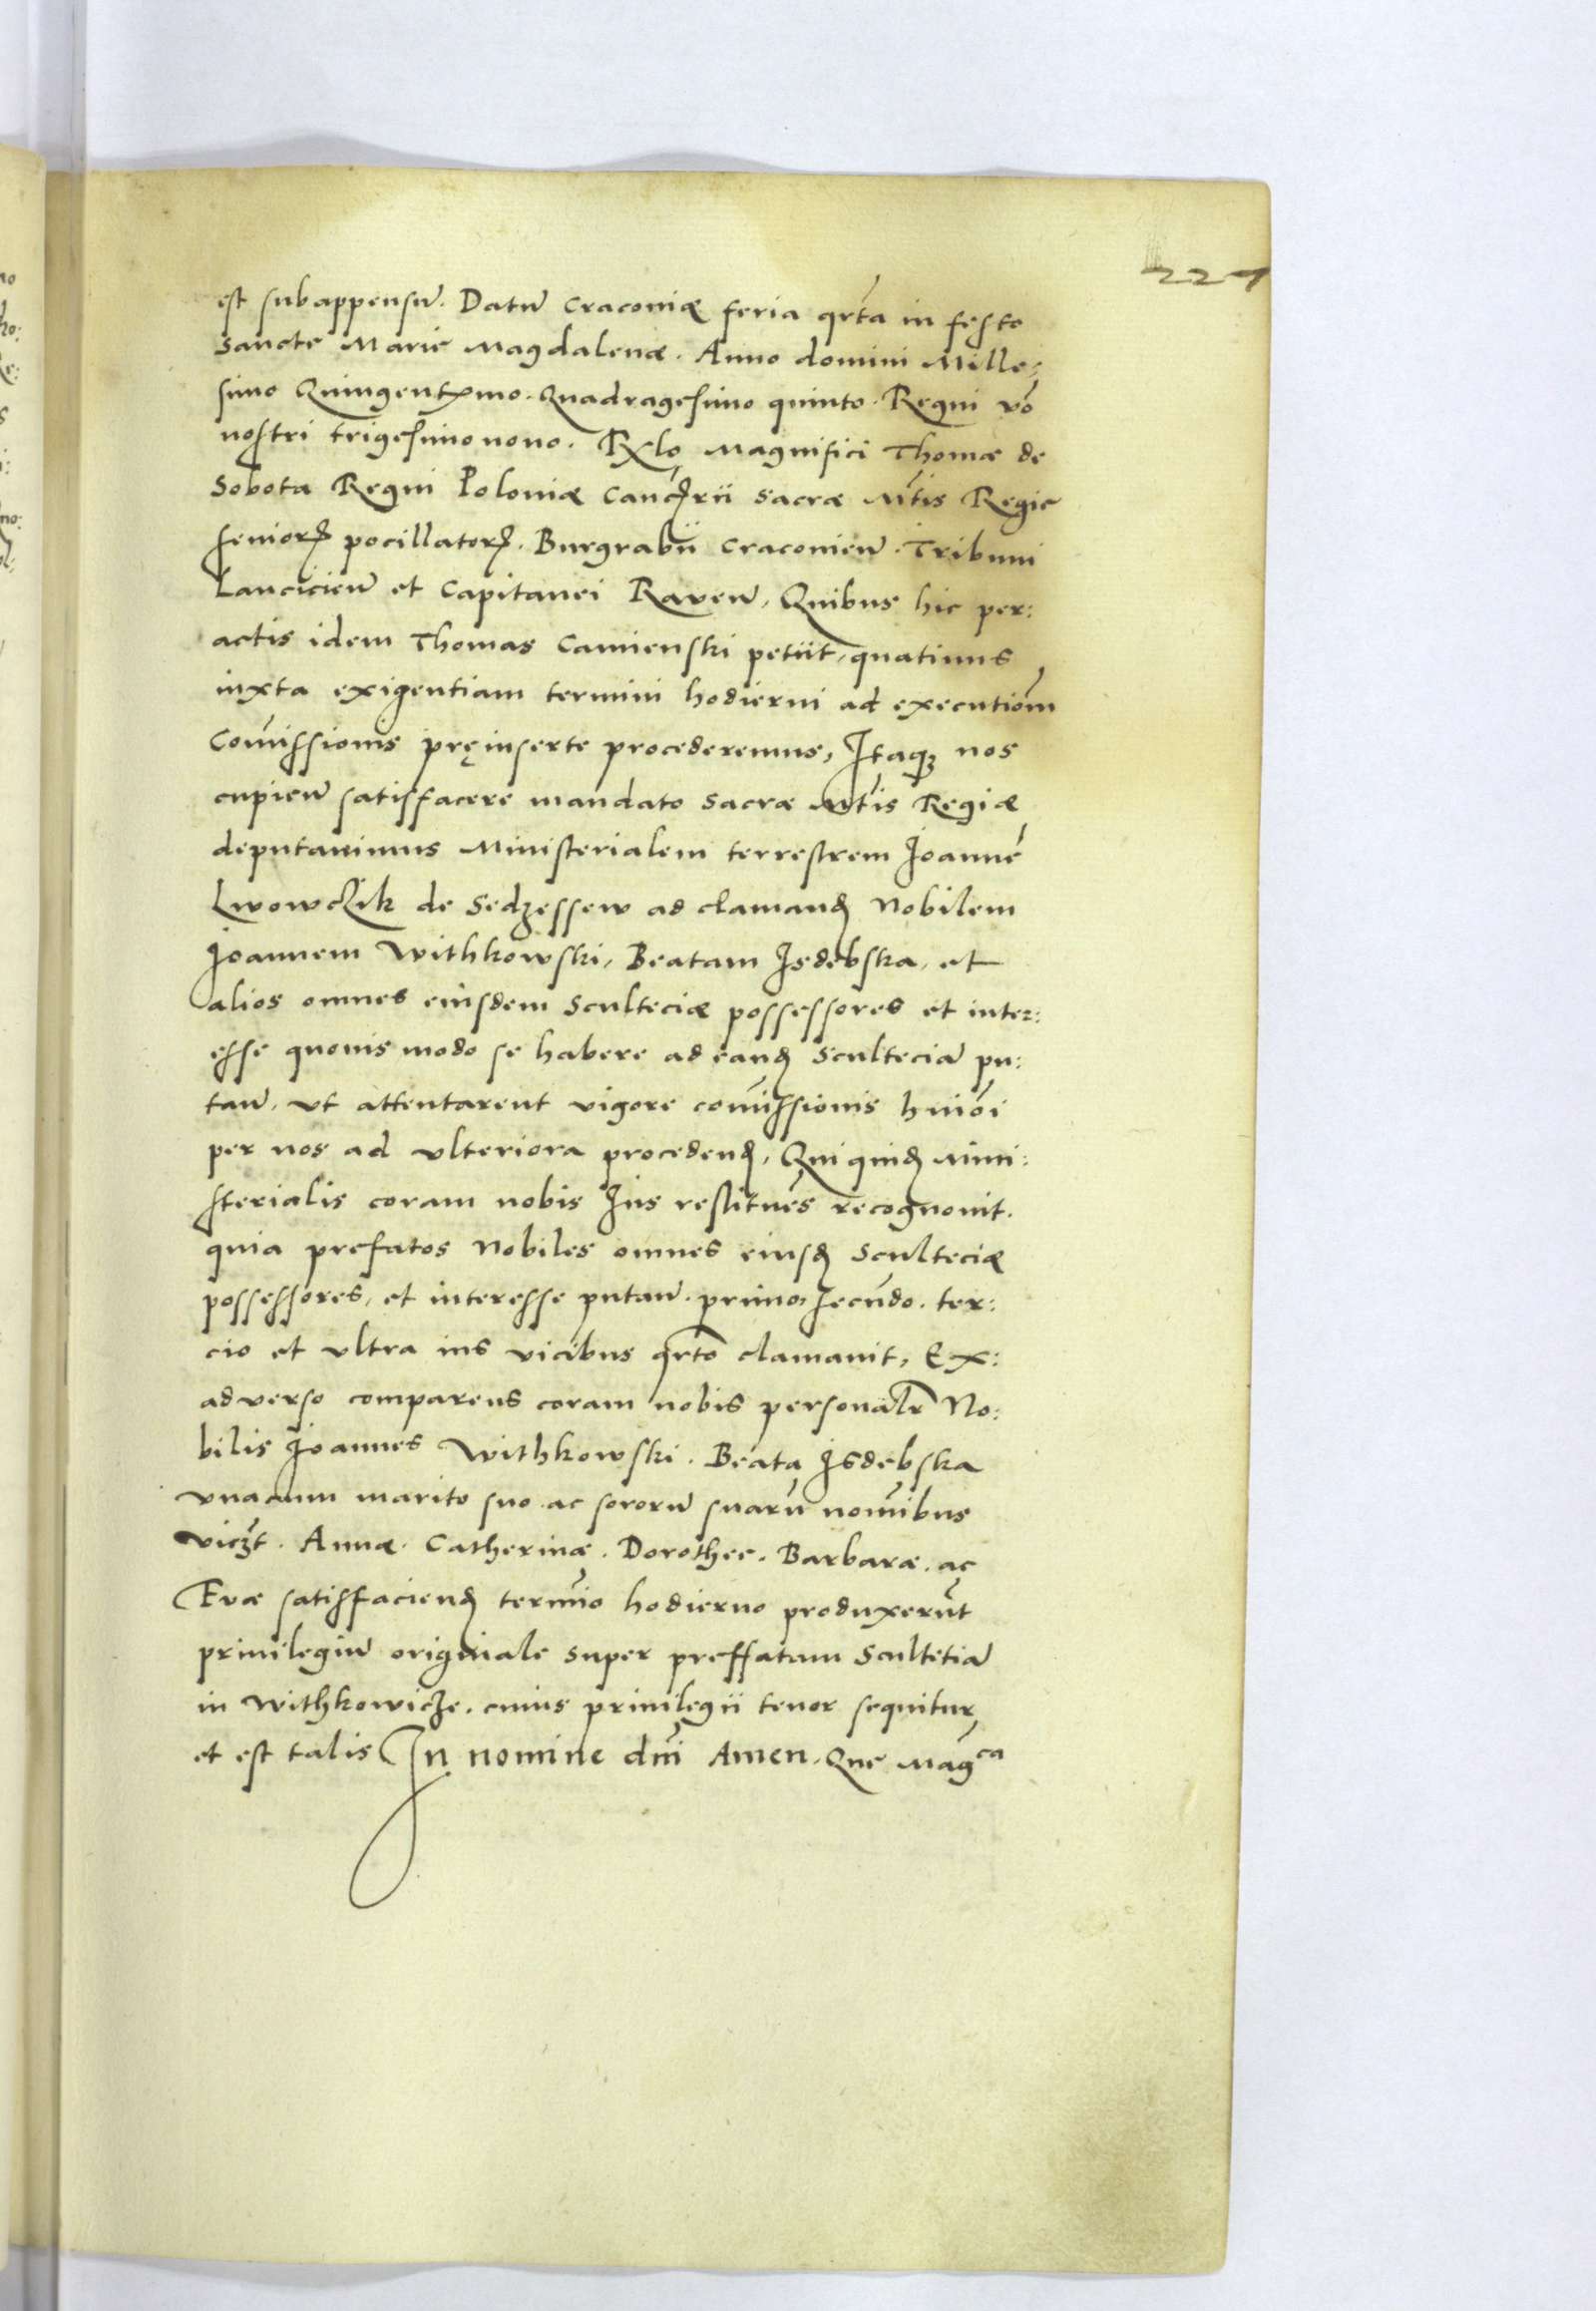 227
est subappensũ. Datũ Craconiæ feria qrta in festo
Sancte Marie Magdalenæ. Anno domini Mille:
simo Quingentmo. Quadragesimo quinto. Regni vo
nostri trigesimo nono. Rlo Magnifici Thomæ de
Sobota Regni Poloniæ Cancrii Sacræ Mtis Regie
senior pocillator. Burgrabii Craconien. Tribuni
Lancicien et Capitanei Raven, Quibus hic per:
actis idem Thomas Camienski petiit, quatinus
iuxta exigentiam termini hodierni ad executiom
Comissionis pręinserte procederemus, Itaqȝ nos
cupien satisfacere mandato Sacræ Mtis Regiæ
deputauimus Ministerialem terrestrem Joannẽ
Lwowczik de Sedzessew ad clamand Nobilem
Joannem Withkowski, Beatam Isdebska, et
alios omnes eiusdem Scultecic possessores et inter:
esse quouis modo se habere ad eand Scultecia pu:
tan, vt attentarent vigore comissionis huioi
per nos ad vlteriora procedend, Qui quid Mini:
sterialis coram nobis Jus restitues recognouit.
quia prefatos Nobiles omnes eiusd Sculteciæ
possessores, et interesse putan. primo, secundo. ter:
cio et vltra ius vicibus qrto clamauit, Ex:
aduerso comparens coram nobis personalr No:
bilis Joannes Withkowski. Beata Isdebska
vnacum marito suo ac sororũ suarũ nomibus
viczt. Annæ. Catherinæ. Dorothee. Barbaræ. ac
Euæ satisfaciend termio hodierno produxerũt
priuilegiũ originale super preffatam Scultetiã
in Withkowicze. cuius priuilegii tenor sequitur
et est talis In nomine dni Amen. Que Magca